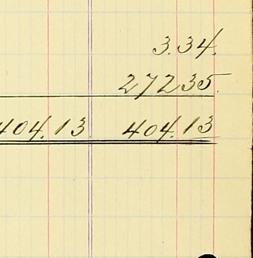 3.34.
272.35.
404.13 404.13